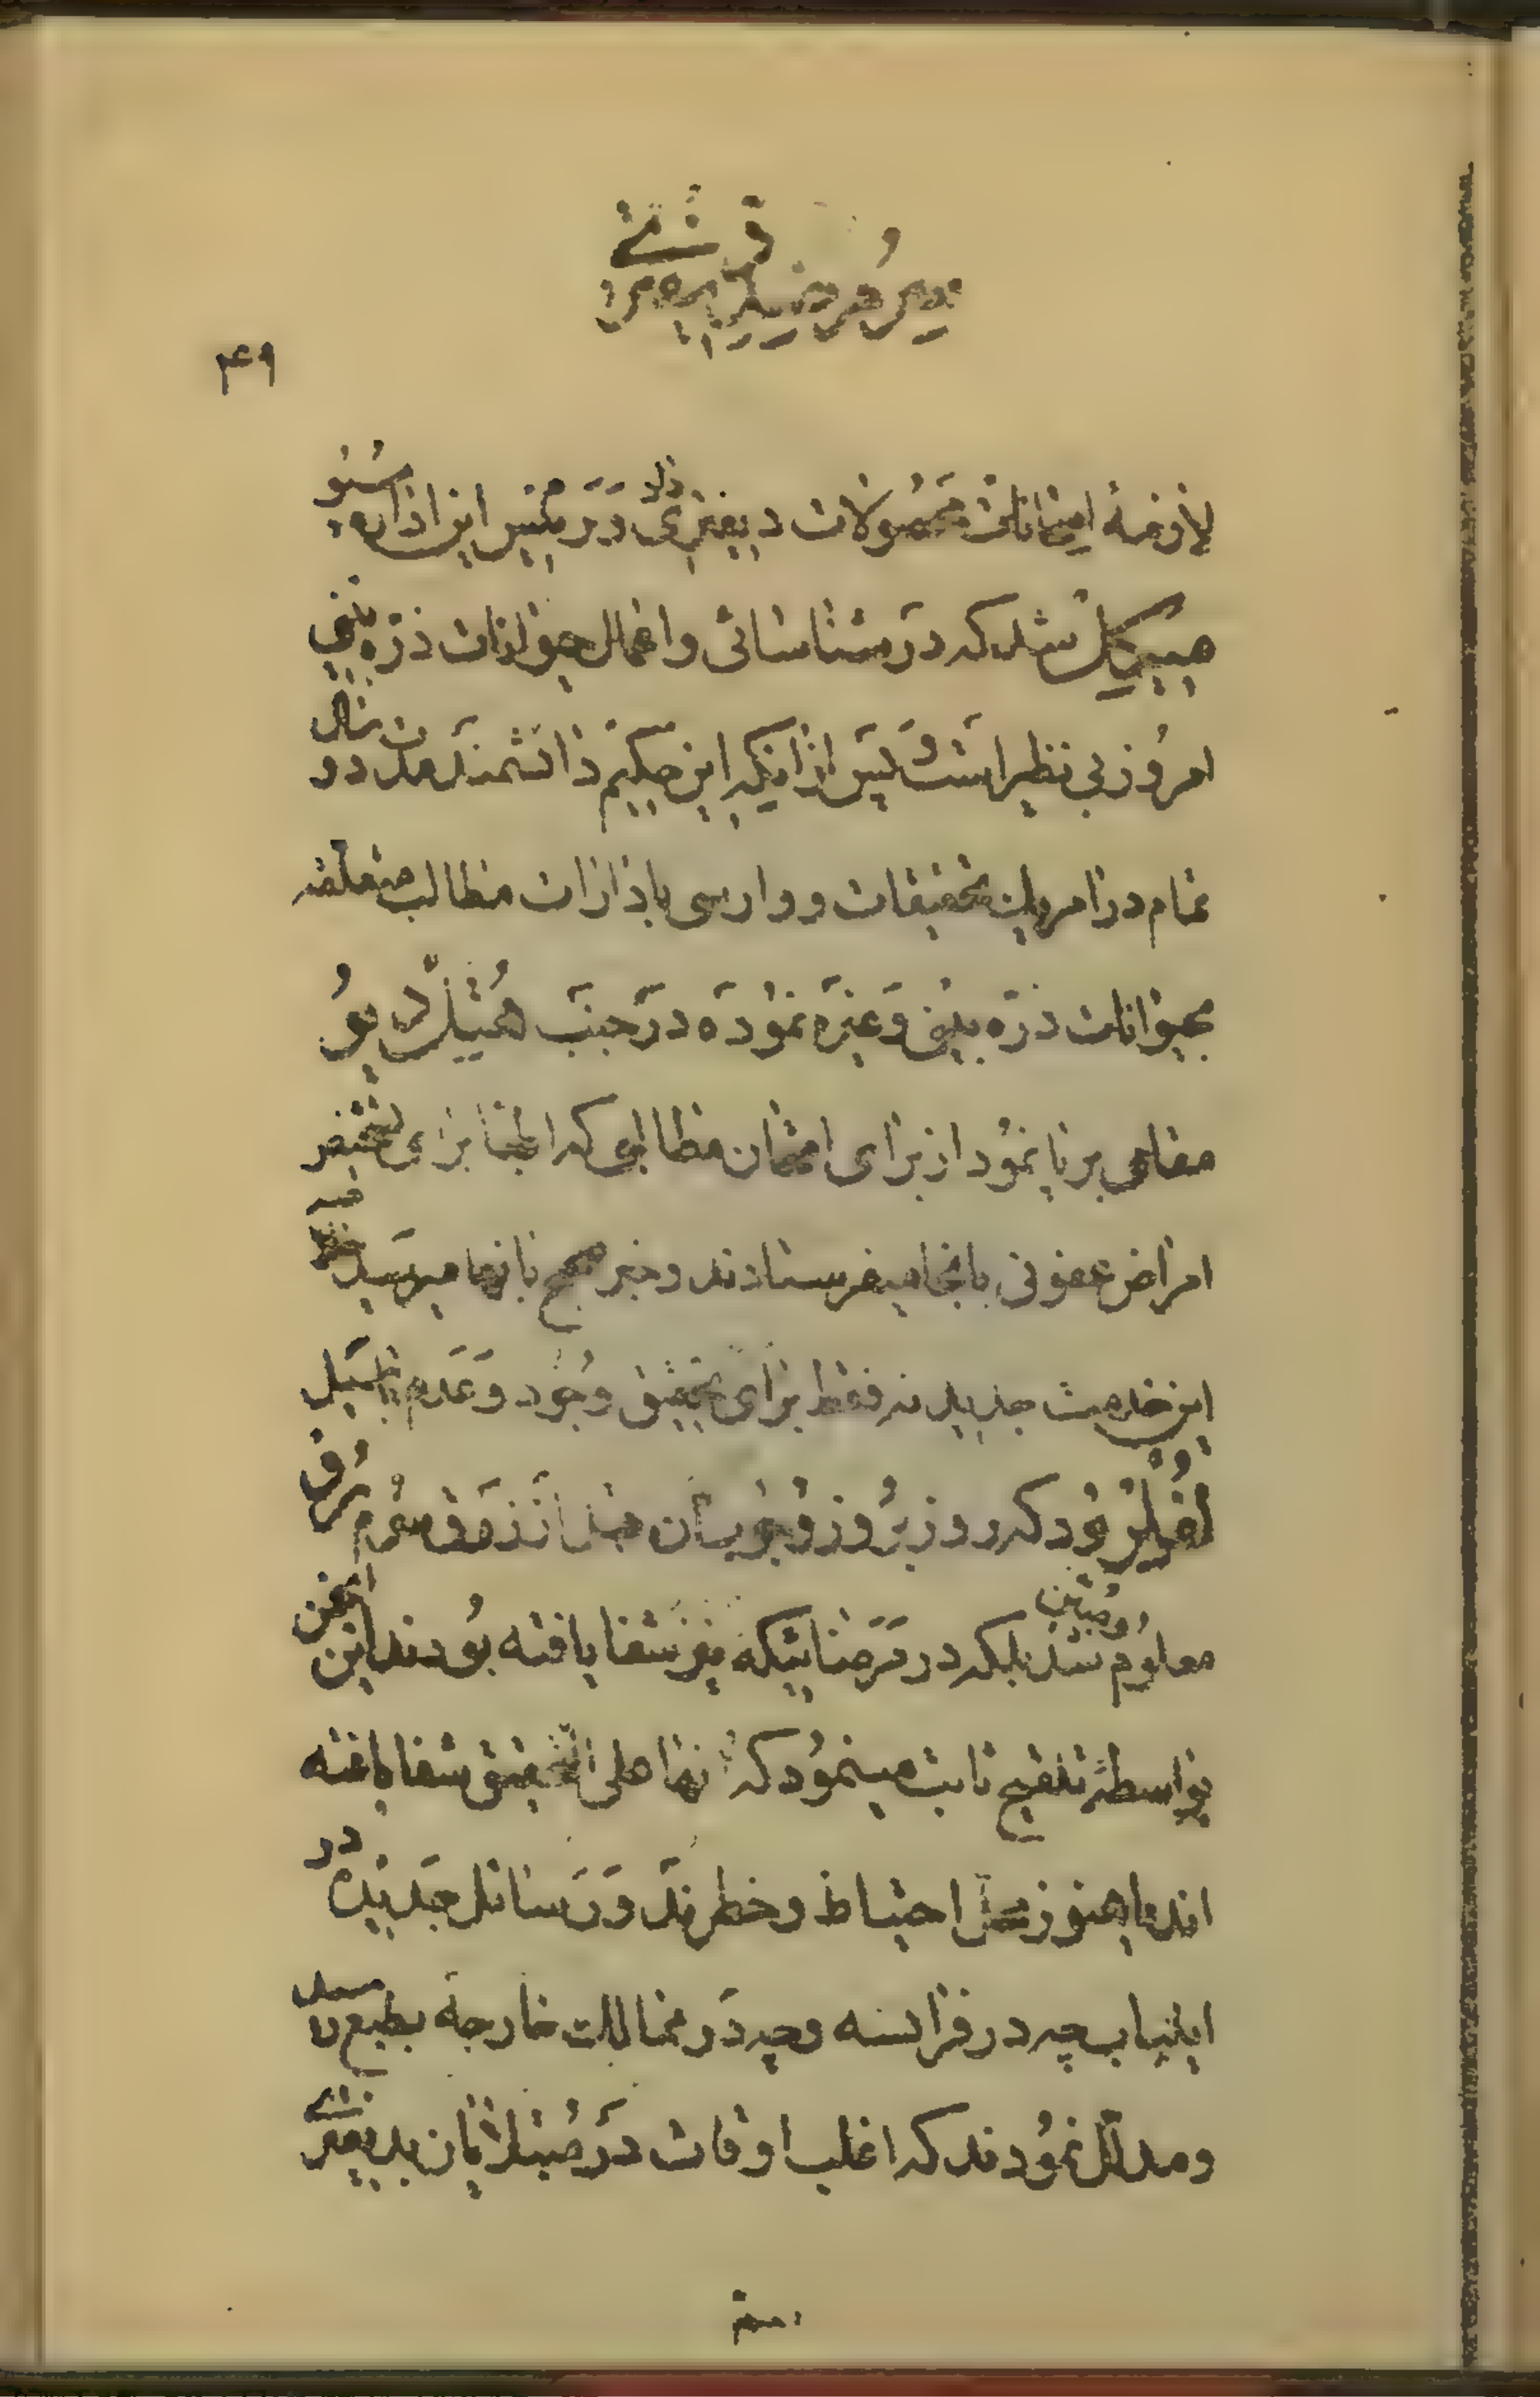 در
۴۹
لازمهٔ امتحانات محصولات دیفتری را در رئیس این اداره مسیو
شد که در شناسائی و اعمال حیوانات ذره‌بینی
امروز بی نظیر است و پس از اینکه این حکیم دانشمند مدت دو سال
تمام در امر یک تحقیقات و وارسی بادارات مطالب متعلقه
بحیوانات ذره‌بینی و غیره نموده در جنب هتیل دیو
مقامی برپا نمود از برای امتحان مطالبی که اطبا برای تشخیص
امراض عفونی بانجا میفرستادند و خبر صحیح بانها میرسید
این خدمت جدید نه فقط برای تحقیق وجود و عدم باسیل
لفلر بود که روز بروز وجوبشان در مردم
معلوم و مبین شد بلکه در مرضائیکه نیز شفا یافته بودند این
بواسطهٔ تلقیح ثابت مینمود که آنها علی التحقیق شفا یافته
اند یا هنوز محل احتیاط و خطرند و رسائل جدیده در
اینباب چه در فرانسه و چه در ممالک خارجه بطبع
و مدلل نمودند که اغلب اوقات در مبتلایان بدیفتری